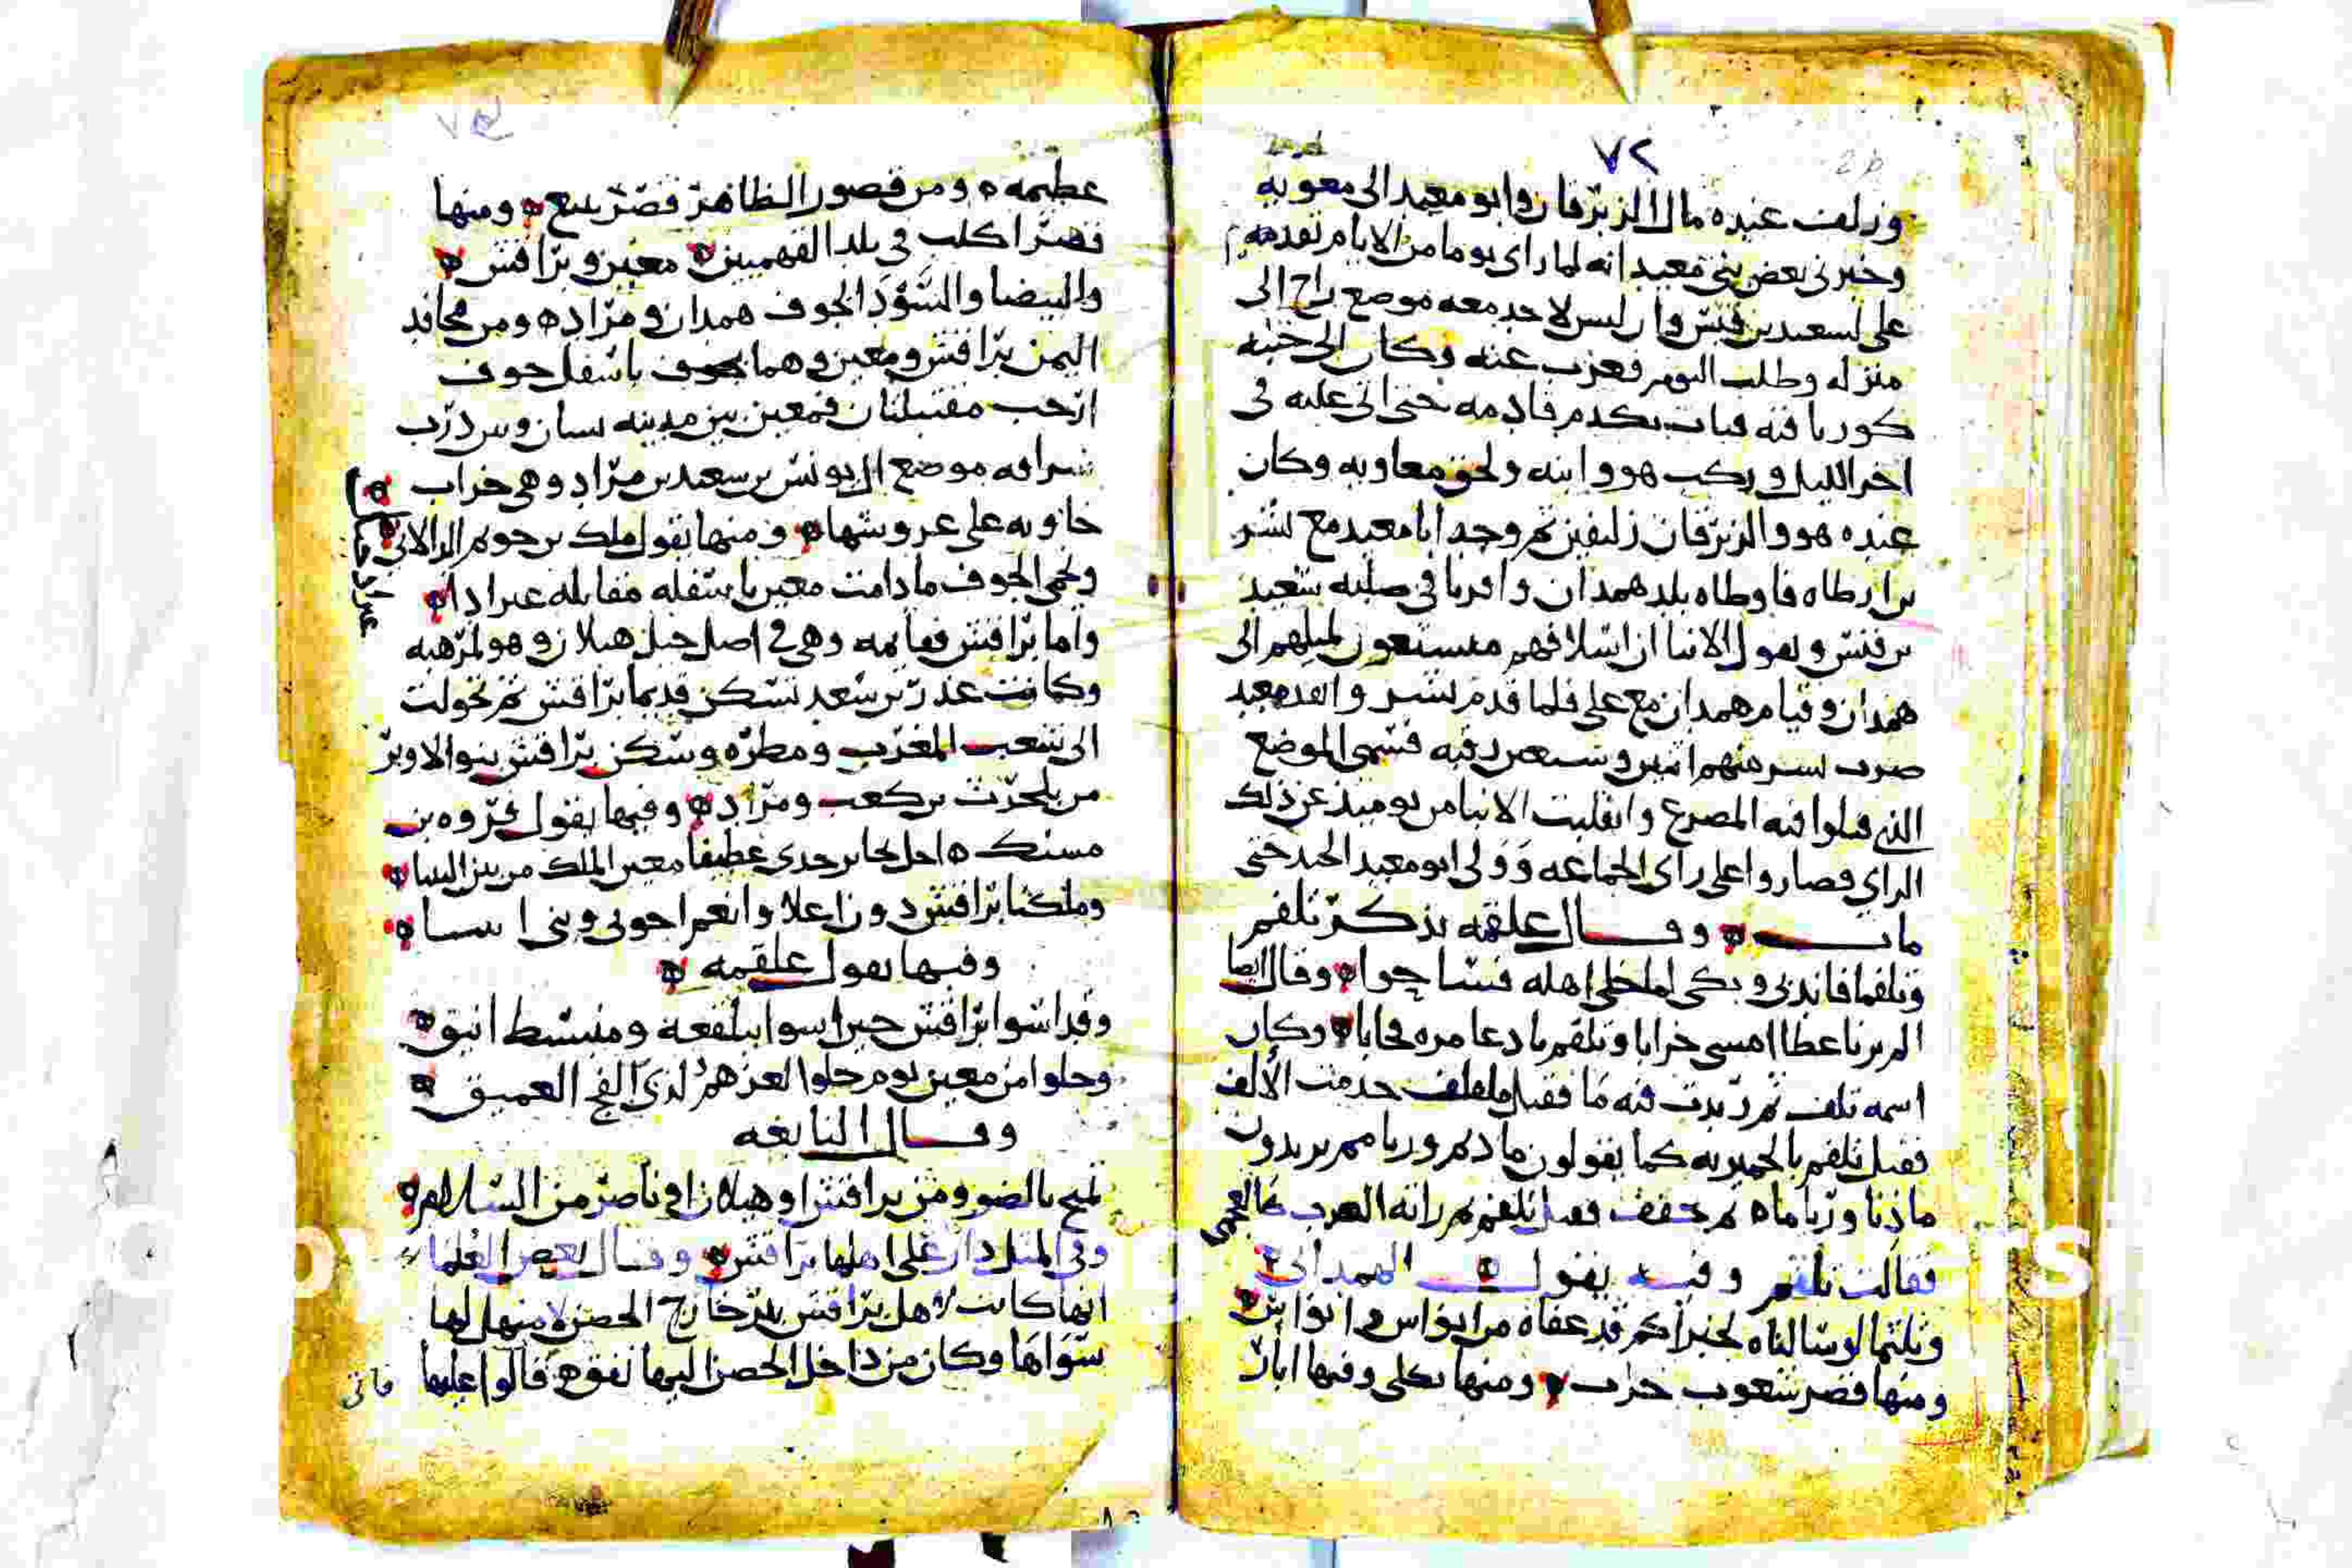 ٧٢
وزلفت عنده مال الزبرقان وابو معيد الى معويه
وخبرنى بعض بنى معيد انه لما راى يوما من الايام تقدمه
على لسعيد بن قيس وان ليس لاحد معه موضع راح الى
منزله وطلب النوم فعزب عنه وكان الى جنبه
كور يافته فبات يكدم قادمه حتى اتى عليه فى
اخر الليل وركب هو وابنه ولحق معاويه وكان
عنده هو والزبرقان زليفين ثم وجه ابا معيد مع بشر
بن ارطاه فاوطاه بلد همدان وافربا فى صلبه سعيد
بن قيس ويقول الابنا ان اسلافهم متشيعون لميلهم الى
همدان وقيام همدان مع على فلما قدم بشر وافد معيد
ضرب بشر منهم اثنين وسبعين رقبه فسمى الموضع
الذى قتلوا فيه المصرع وانقلبت الابنا من يوميذ عن ذلك
الراى فصاروا على راى الجماعه وولى ابو معيد الجند حتى
مات وقال علقمه يذكر تلقم
وتلقما فاندبى وبكى لما خلى اهله فساحوا وقال ايضا
الم ترنا عطا امسى خرابا وتلقم يا دعا مره مجابا وكان
اسمه تلف ثم زيدت فيه ما فقيل ما تلف حذفت الالف
فقيل تلقم بالحميريه كما يقولون ماذنم وربامم يريدون
ماذنا ورياما ثم خفف فقيل تلقم ثم راته العرب كالعجمى
فقالت تلقم وفيه يقول الهمدانى
وتلثما لو سالناه لخبراكم قد عفاه من ابواس وانواس
ومنها قصر شعوب خراب ومنها تكلى وفيها اثار
عظيمه ومن قصور الظاهر قصر يشيع ومنها
قصر اكلب فى بلد الفهميين معين وبراقش
والبيضا والسود الجوف همدان ومراد ومن محافد
اليمن براقش ومعين وهما بجوف باسفل جوف
ارحب مقتبلتان فمعين بين مدينه نشان وبين درب
شراقه موضع ال يونس بن سعد بن مراد وهى خراب
خاويه على عروشها ومنها يقول ملك بن حريم الدالانى
ونحمى الجوف ما دامت معين باسفله مقابله عرادا
عراد مكان
واما براقش فقايمه وهى فى اصل جبل هيلان وهو لمرهبه
وكانت عذر بن سعد تسكن قديما براقش ثم تحولت
الى شعب المغرب ومطره وسكن براقش بنو الاوبر
من بلحرث بن كعب ومراد وفيها يقول فروه بن
مسيك احل يحابر جدى غطيفا معين الملك من بين البنينا
وملكنا براقش دون اعلا وانعم اخوتى وبنى ابينا
وفيها يقول علقمه
وقد اسوا براقش حين اسوا ببلقعة ومنبسط انيق
وحلوا من معين يوم حلوا لعزهم لدى الفج العميق
وقال النابغه
تميح بالضرو من براقش او هيلان او ناضر من السلام
وفى المثل دل على اهلها براقش وقال بعض العلما
انها كانت لاهل براقش بئر خارج الحصن لا منهل لها
سواها وكان من داخل الحصن اليها نفق قالوا عليها
فاتى